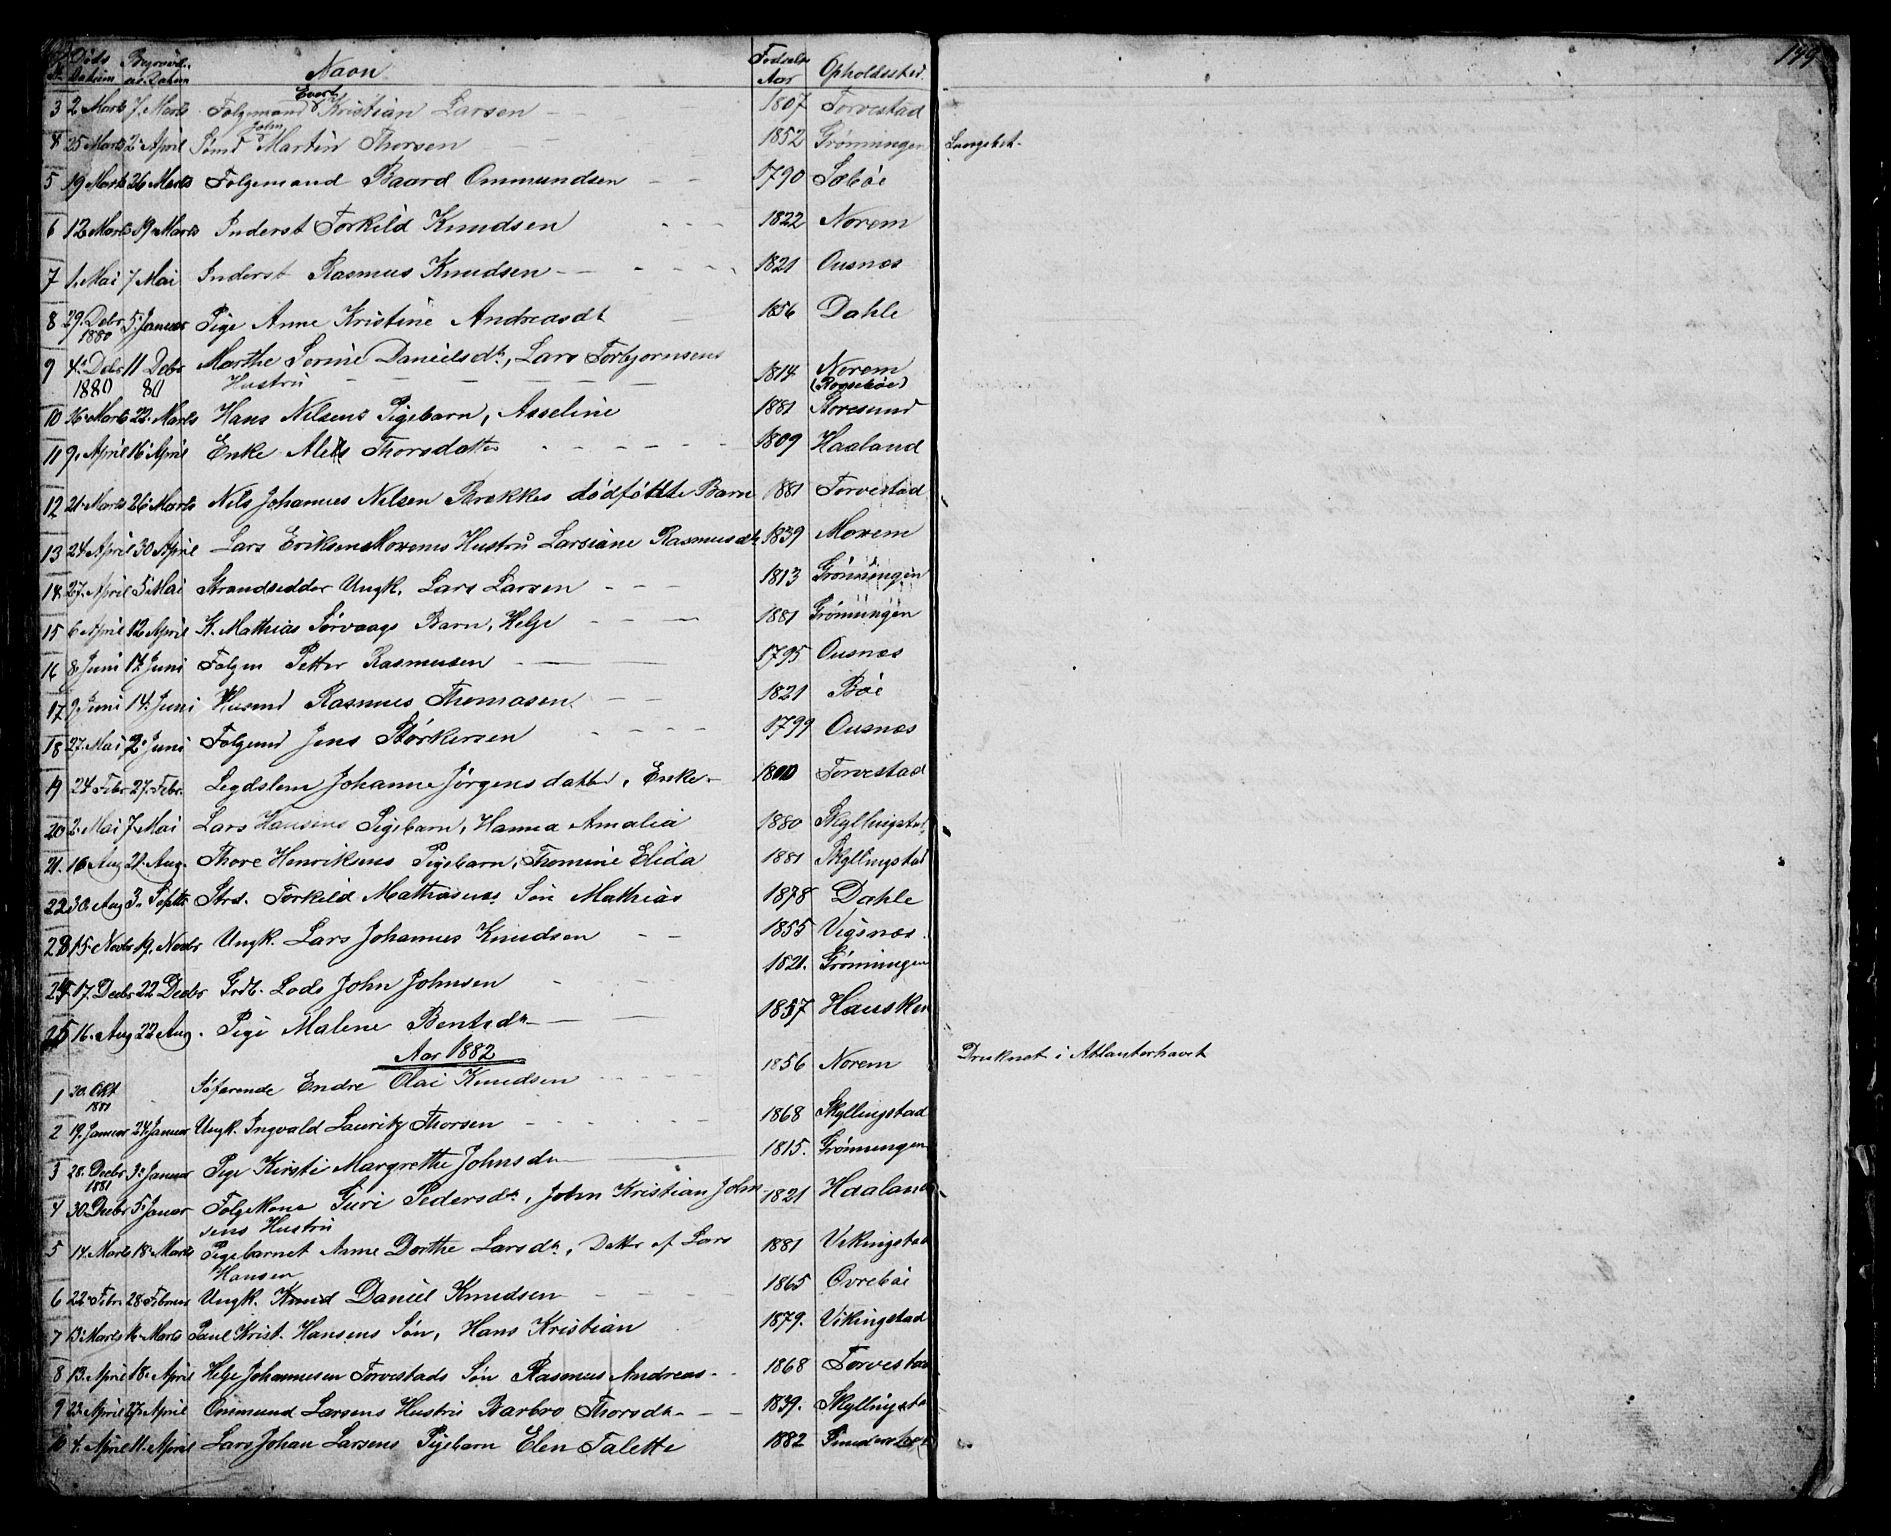 149
No Døds Datum Begravel. ae. Datum Navn Fødsels Aar Opholdssted
3 2 Marts 7. Marts Folgemand Evert Kristian Larsen 1807 Torvestad
4 25 Marts 2. April Smd John Martin Thorsen 1852 Grønningen
5 19 Marts 26 Marts Folgemand Baard Ommundsen 1790 Sæbøe
6 12 Marts 19 Marts Inderst Torkild Knudsen 1822 Norem
7 1. Mai 7 Mai Inderst Rasmus Knudsen 1821 Ousnæs
8 29. Debr 1880 5. Januar Pige Anne Kristine Andreasdt 1856 Dahle
9 4. Debr 1880 11 Debr 80 Marthe Serine Danielsdt, Lars Torbjørnsens
Hustru 1814 Norem
10 16. Marts 22. Marts Hans Nilsens Pigebarn, Asseline 1881 Storesund
11 9. April 16 April Enke Alets Thorsdatter 1809 Haaland
12 21. Marts 26 Marts Nils Johannes Nilsen Brekkes dødføtte Barn 1881 Torvestad
13 24 April 30 April Lars Eriksen Norems Hustru Larsiane Rasmusdt 1839 Norem
14 27. April 5 Mai Strandsidder Ungk. Lars Larsen 1813 Grønningen
15 6 April 12 April K. Mathias Sørvaags Barn, Helge 1881 Grønningen
16 8. Juni 12 Juni Folgm Petter Rasmusen 1795 Ousnæs
17 9. Juni 14. Juni Husmd Rasmus Thomasen 1821 Bøe
18 27. Mai 2. Juni Folgmd Jens Størkersen 1799 Ousnæs
19 24 Febr 27. Febr. Legdslem Johanne Jørgensdatter, Enke 1800 Torvestad
20 2. Mai 7. Mai Lars Hansens Pigebarn, Hanna Amalia 1880 Skyllingstad
21. 16 Aug 21. Aug. Thore Henriksens Pigebarn, Thomine Elida 1881 Skyllingstad
22 30. Aug 3. Septb Strs. Torkild Mathiasens Søn Mathias 1878 Dahle
23 15. Novbr 19. Novbr Ungk. Lars Johannes Knudsen 1855 Vigsnæs
24 17. Decbr 22 Decbr Grdb. Lods John Johnsen 1821. Grønningen
25 16. Aug 22 Aug. Pige Malene Bentsdt 1857 Hausken
Aar 1882
1 30. Okt 1881 Søfarende Endre Olai Knudsen 1856 Norem Druknet i Atlanterhavet
2 19. Januar 24. Januar Ungk. Ingvald Lauritz Thorsen 1868 Skyllingstad
3 28. Decbr 1881 3. Januar Pige Kirsti Margrethe Johnsdt 1815. Grønningen
4 30. Decbr 5. Januar Folgekone Guri Pedersdt, John Kristian John
sens Hustru 1821 Haaland
5 14. Marts 18. Marts Pigebarnet Anne Dorthe Larsdt, Dattr af Lars
Hansen 1881 Vikingstad
6 22. Febr 28. Februar Ungk. Knud Daniel Knudsen 1865 Øvrebøe
7 13. Marts 16. Marts Paul Krist. Hansens Søn, Hans Kristian 1879. Vikingstad
8 13. April 18. April Helge Johannesen Torvestads Søn Rasmus Andreas 1868 Torvestad
9 23. April 27. April Ommund Larsens Hustru Barbro Thorsdt 1839. Skyllingstad
10 4. April 11. April Lars Johan Larsens Pigebarn Elen Talette 1882